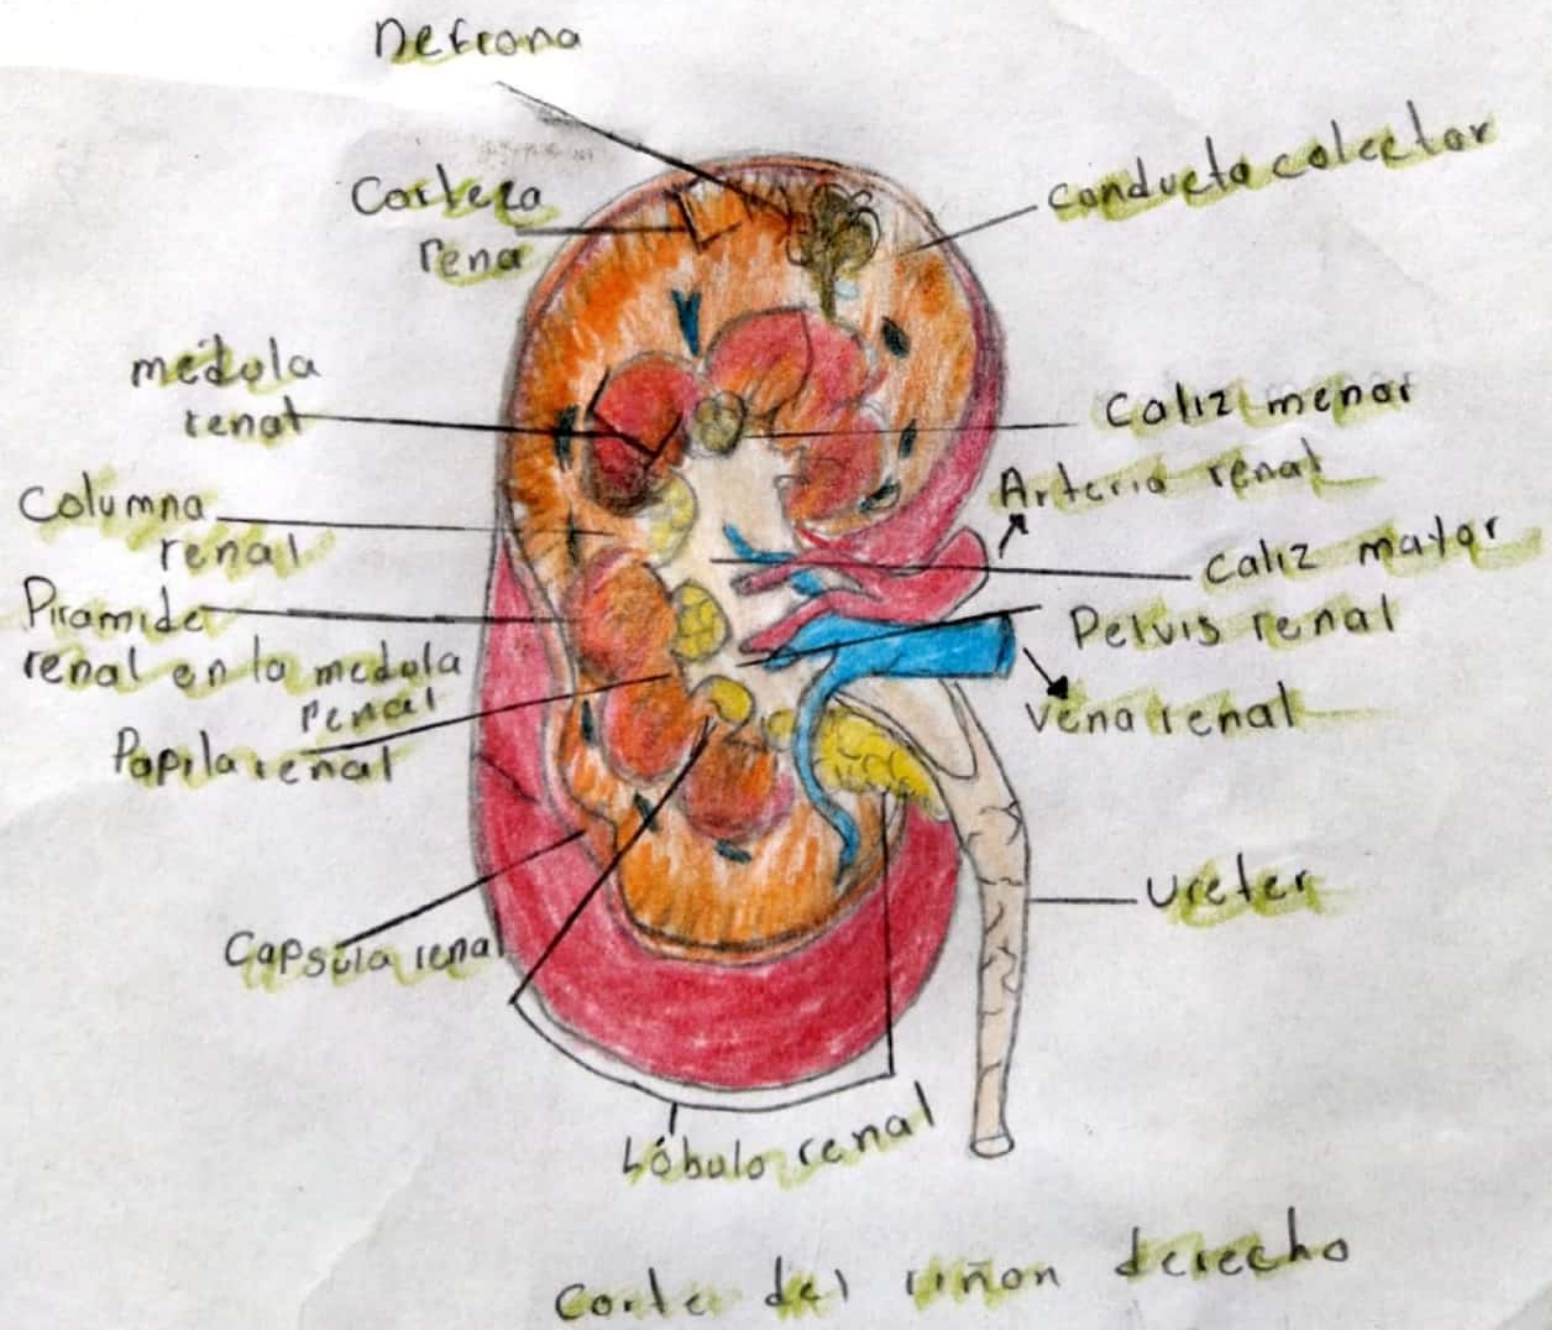 Nefrona
Corteza
rena
conducto colector
medula
renal
Caliz menor
Arteria renal
Columna
renal
caliz mayor
Piramide
renal en la medula
renal
Pelvis renal
Vena renal
Papila renal
Ureter
Capsula renal
Lóbulo renal
Corte del riñon derecho